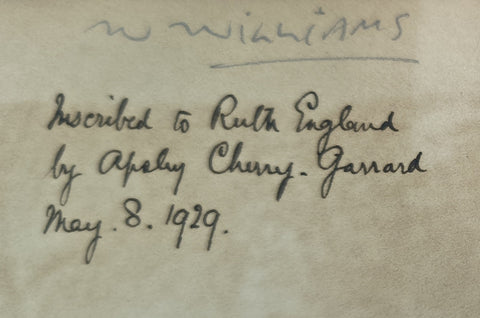 W WILLIAMS
Inscribed to Ruth England
by Apsley Cherry-Garrard
May. 8. 1929.